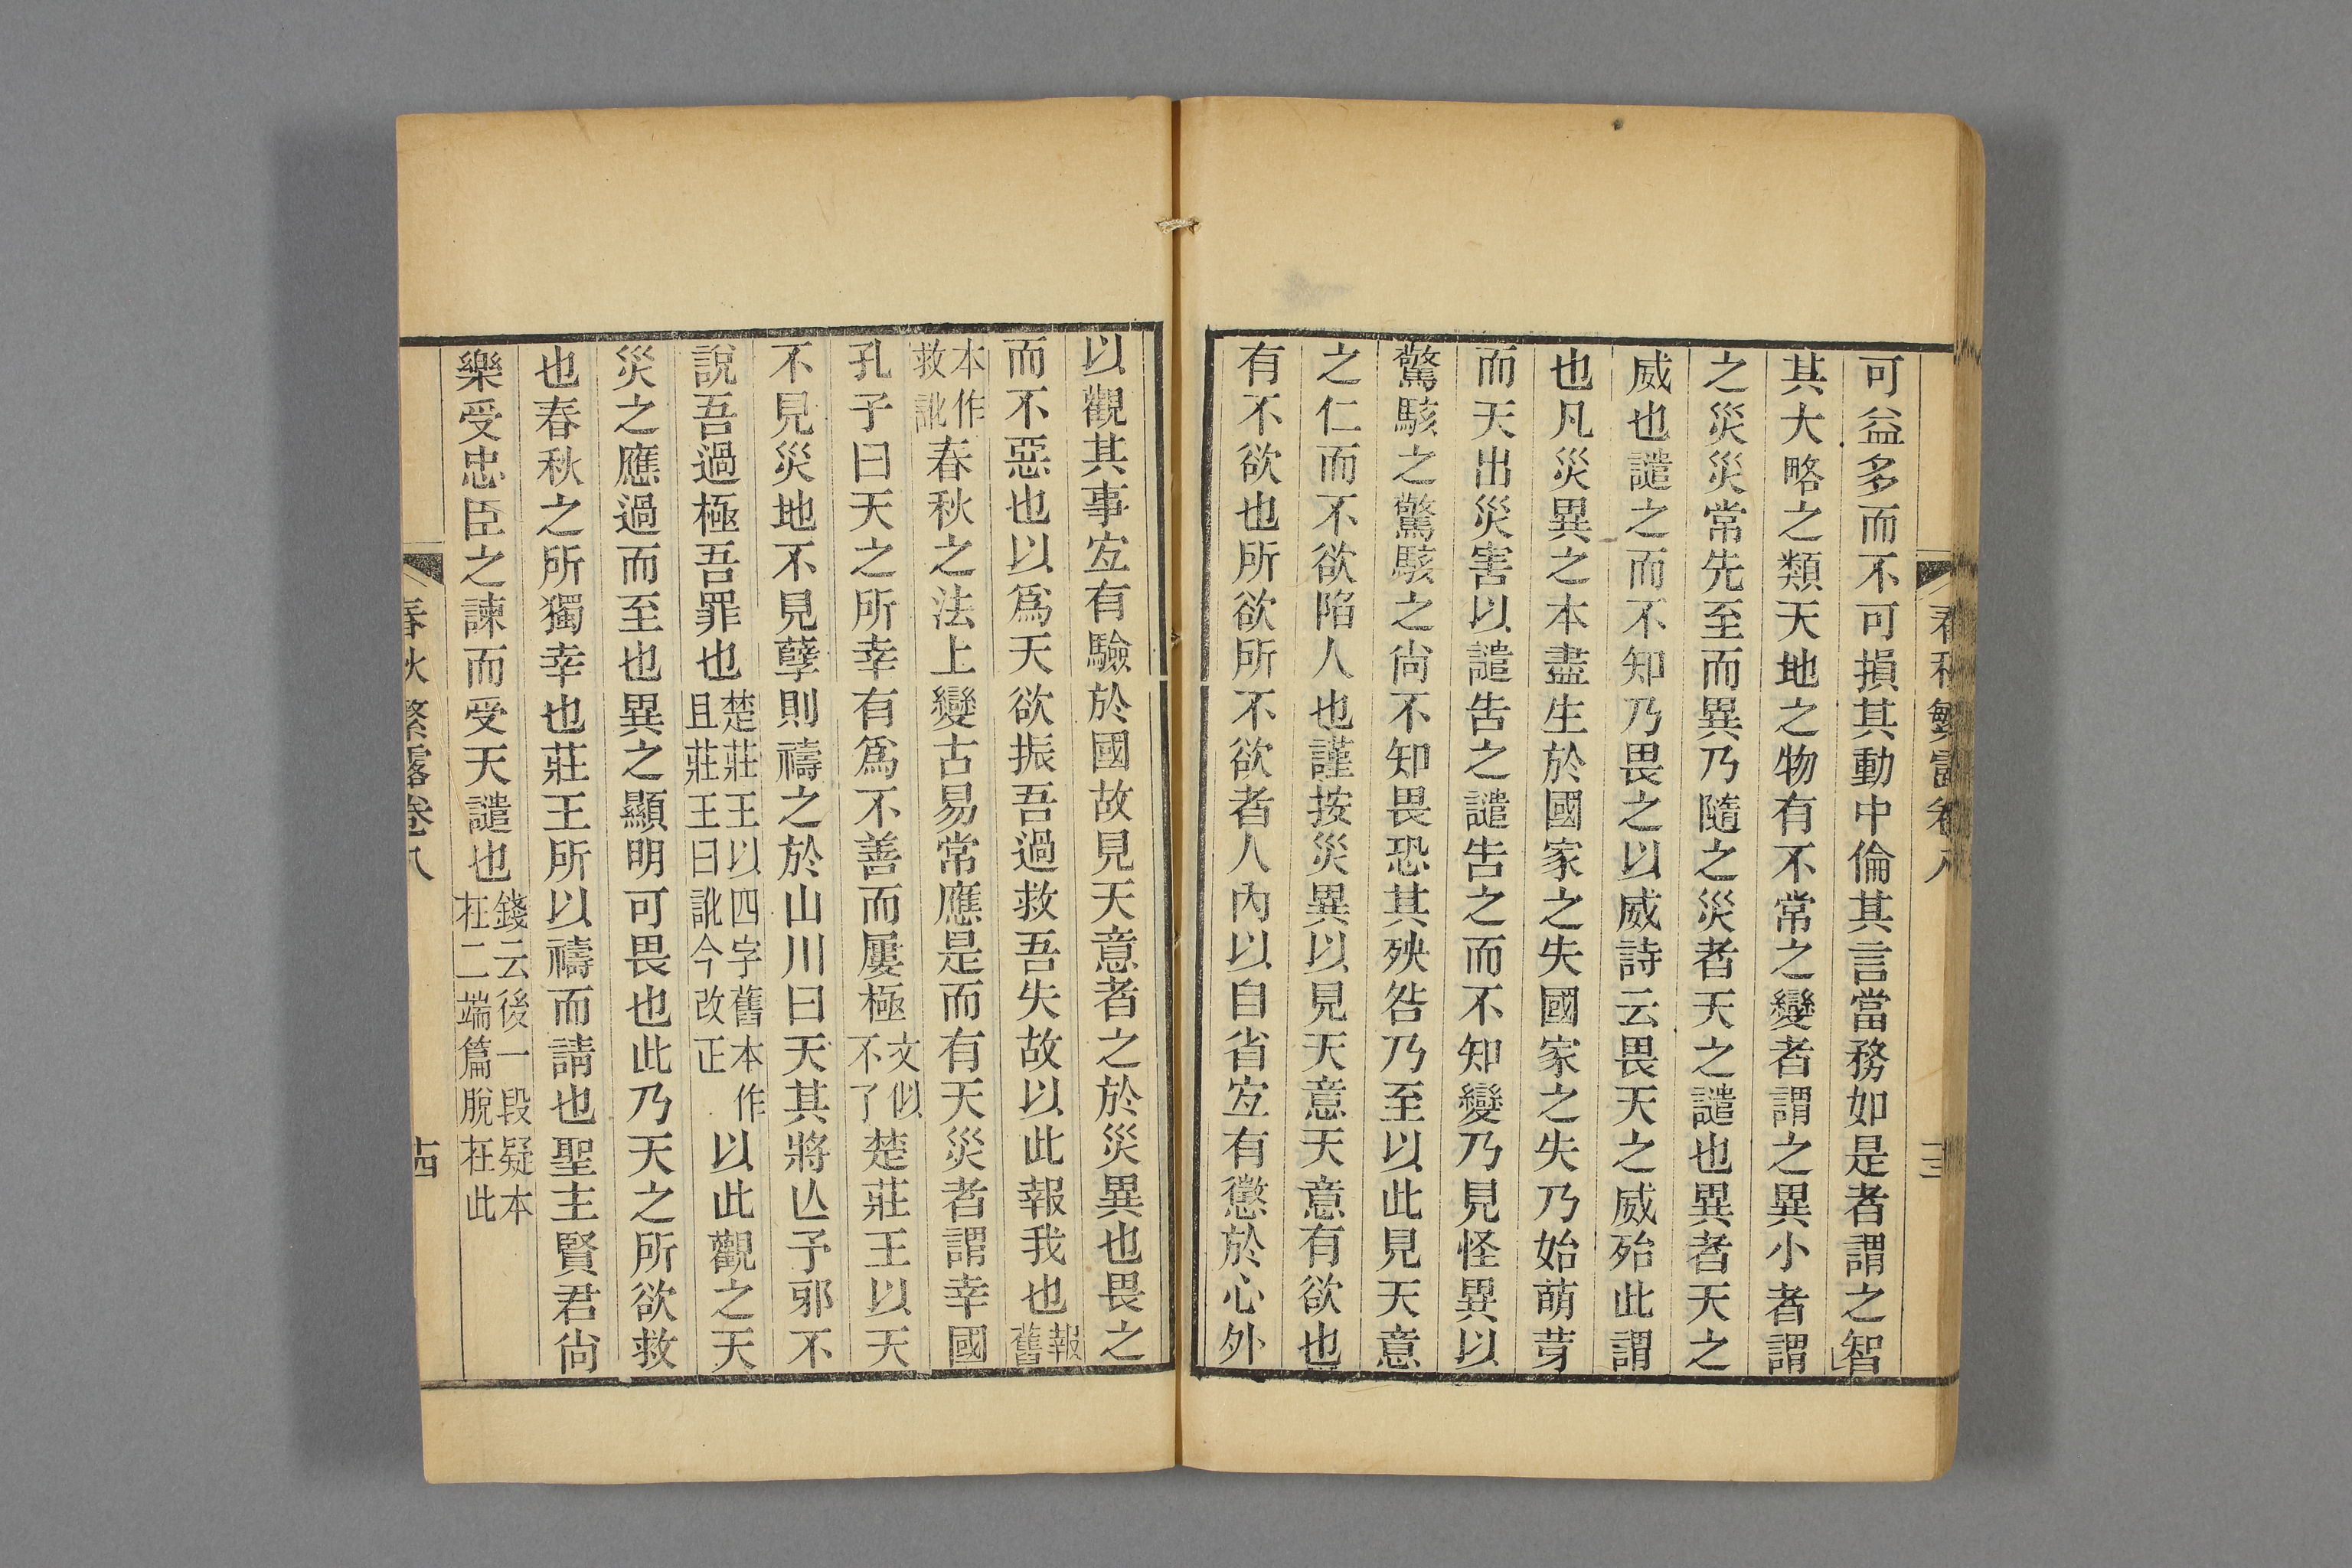 春秋繁露卷八
十三
可益多而不可損其動中倫其言當務如是者謂之智
其大略之類天地之物有不常之變者謂之異小者謂
之災災常先至而異乃隨之災者天之譴也異者天之
威也譴之而不知乃畏之以威詩云畏天之威殆此謂
也凡災異之本盡生於國家之失國家之失乃始萌芽
而天出災害以譴告之譴告之而不知變乃見怪異以
驚駭之驚駭之尙不知畏恐其殃咎乃至以此見天意
之仁而不欲陷人也謹按災異以見天意天意有欲也
有不欲也所欲所不欲者人內以自省宐有懲於心外
以觀其事宐有驗於國故見天意者之於災異也畏之
而不惡也以爲天欲振吾過救吾失故以此報我也報舊
本作救訛春秋之法上變古易常應是而有天災者謂幸國
孔子曰天之所幸有爲不善而屢極文似不了楚莊王以天
不見災地不見孽則禱之於山川曰天其將亾予邪不
說吾過極吾罪也楚莊王以四字舊本作且莊王曰訛今改正以此觀之天
災之應過而至也異之顯明可畏也此乃天之所欲救
也春秋之所獨幸也莊王所以禱而請也聖主賢君尙
樂受忠臣之諫而受天譴也錢云後一段疑本在二端篇脫在此
春秋繁露卷八
十四